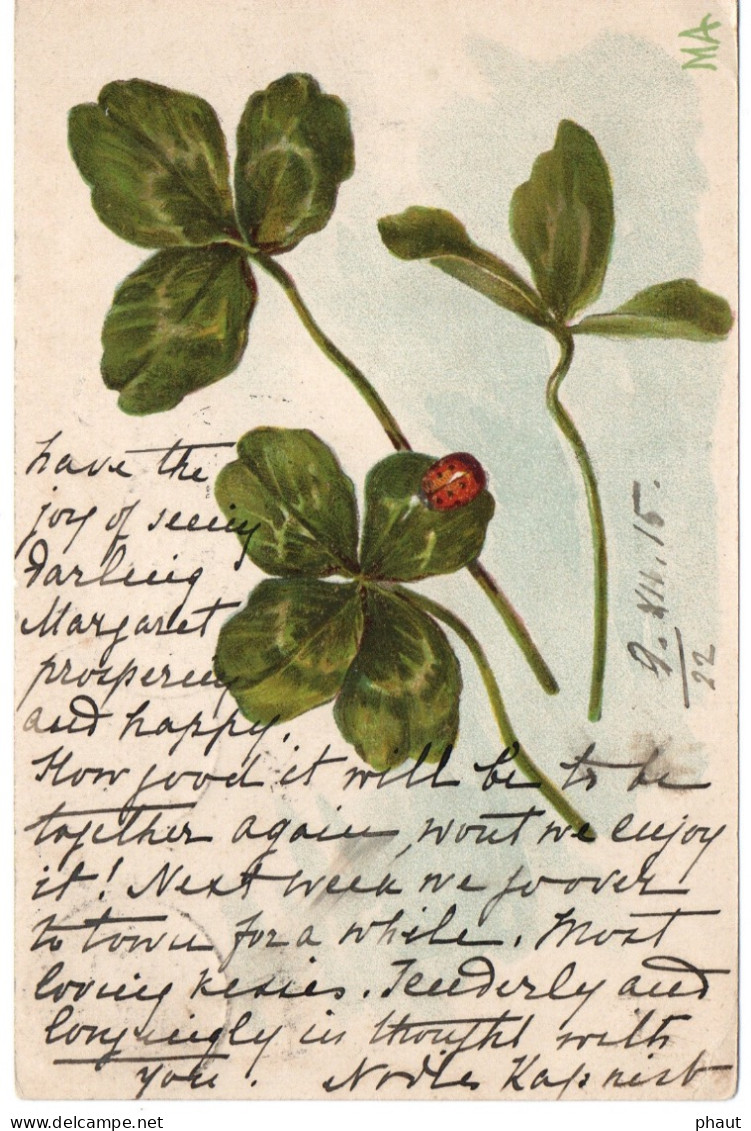 MA
have the
joy of seeing
Darling
Margaret
prospering
and happy.
How good it will be to be
together again, wont we enjoy
it! Next week we go over
to town for a while. Most
loving kisses. Tenderly and
longingly in thought with
you. Kapnist
9. XII. 15.
22
phaut